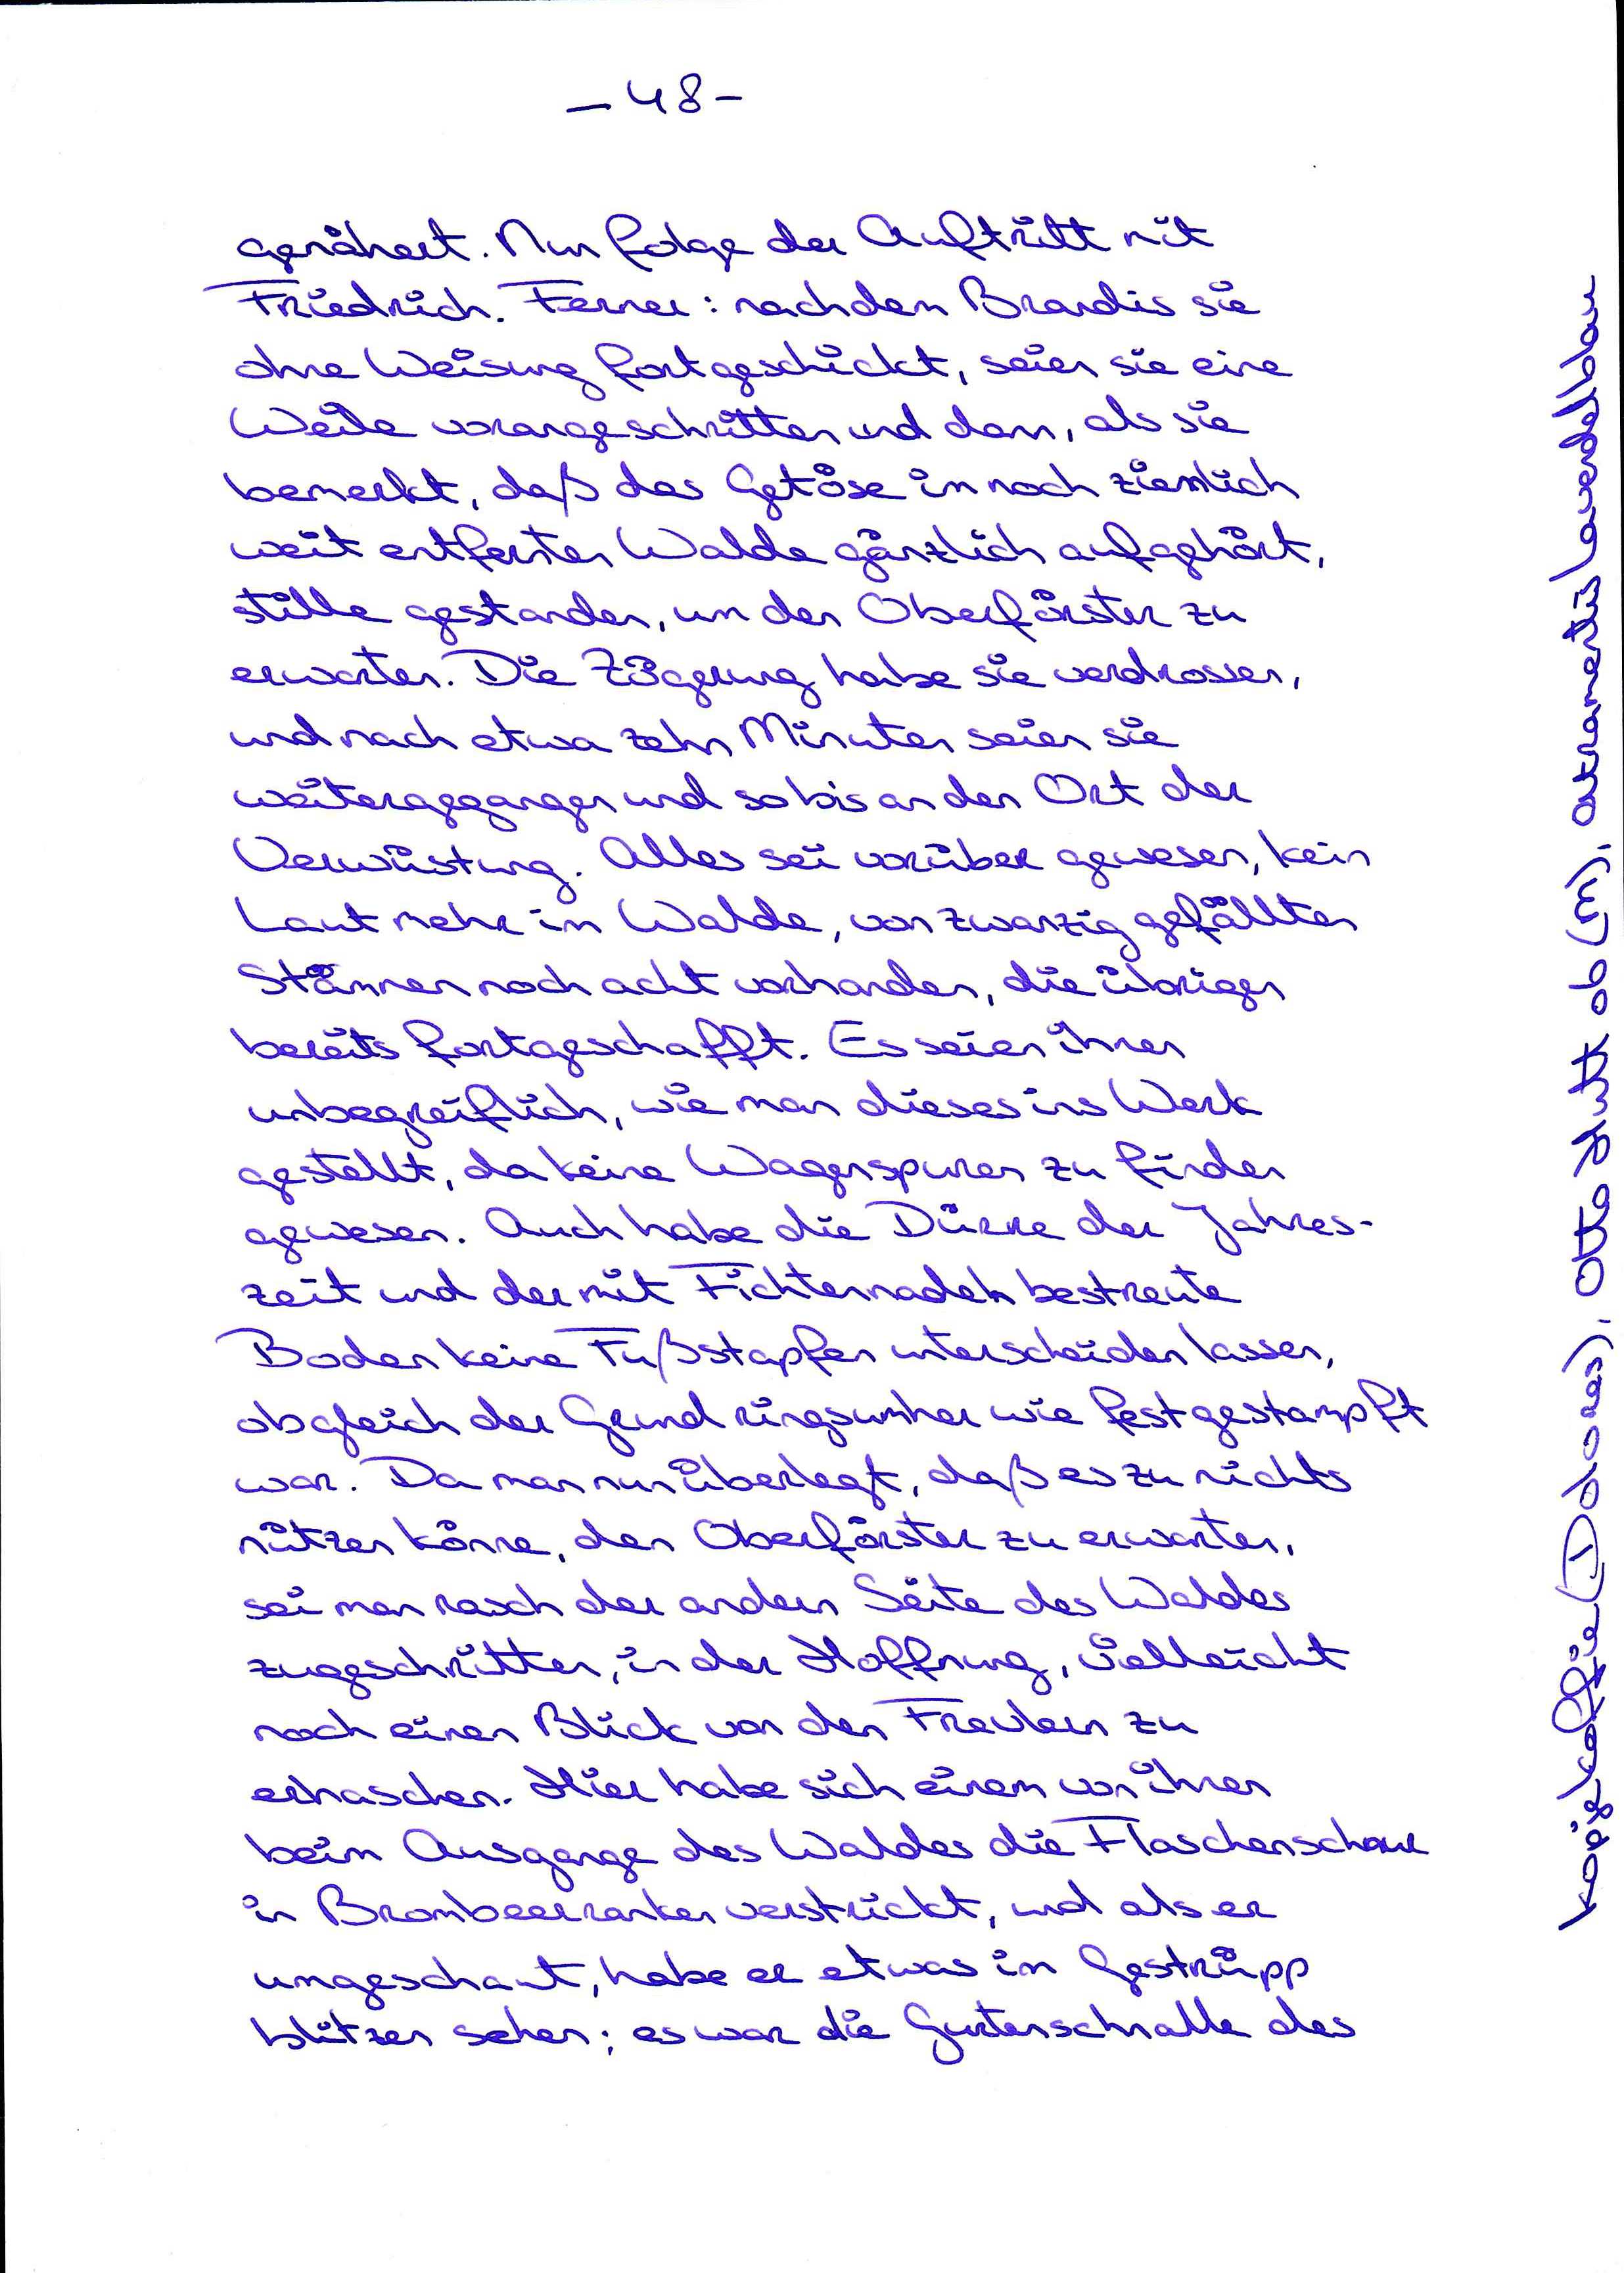 - 48 -
genähert. Nun folge der Auftritt mit
Friedrich. Ferner: nachdem Brandis sie
ohne Weisung fortgeschickt, seien sie eine
Weile vorangeschritten und dann, als sie
bemerkt, daß das Getöse im noch ziemlich
weit entfernten Walde gänzlich aufgehört,
stille gestanden, um den Oberförster zu
erwarten. Die Zögerung habe sie verdrossen,
und nach etwa zehn Minuten seien sie
weitergegangen und so bis an den Ort der
Verwüstung. Alles sei vorüber gewesen, kein
Laut mehr im Walde, von zwanzig gefällten
Stämmen noch acht vorhanden, die übrigen
bereits fortgeschafft. Es seien ihnen
unbegreiflich, wie man dieses ins Werk
gestellt, da keine Wagenspuren zu finden
gewesen. Auch habe die Dürre der Jahres-
zeit und der mit Fichtennadeln bestreute
Boden keine Fußstapfen unterscheiden lassen,
obgleich der Grund ringsumher wie festgestampft
war. Da man nun überlegt, daß es zu nichts
nützen könne, den Oberförster zu erwarten,
sei man rasch der andern Seite des Waldes
zugeschritten, in der Hoffnung, vielleicht
noch einen Blick von den Frevlern zu
erhaschen. Hier habe sich einem von ihnen
beim Ausgange des Waldes die Flaschenschnur
in Brombeerranken verstrickt, und als er
umgeschaut, habe er etwas im Gestrüpp
blitzen sehen; es war die Gurtenschnalle des
Kopie (Ddores), Otto Hutt 06 (M), octramentis Lavendelblau